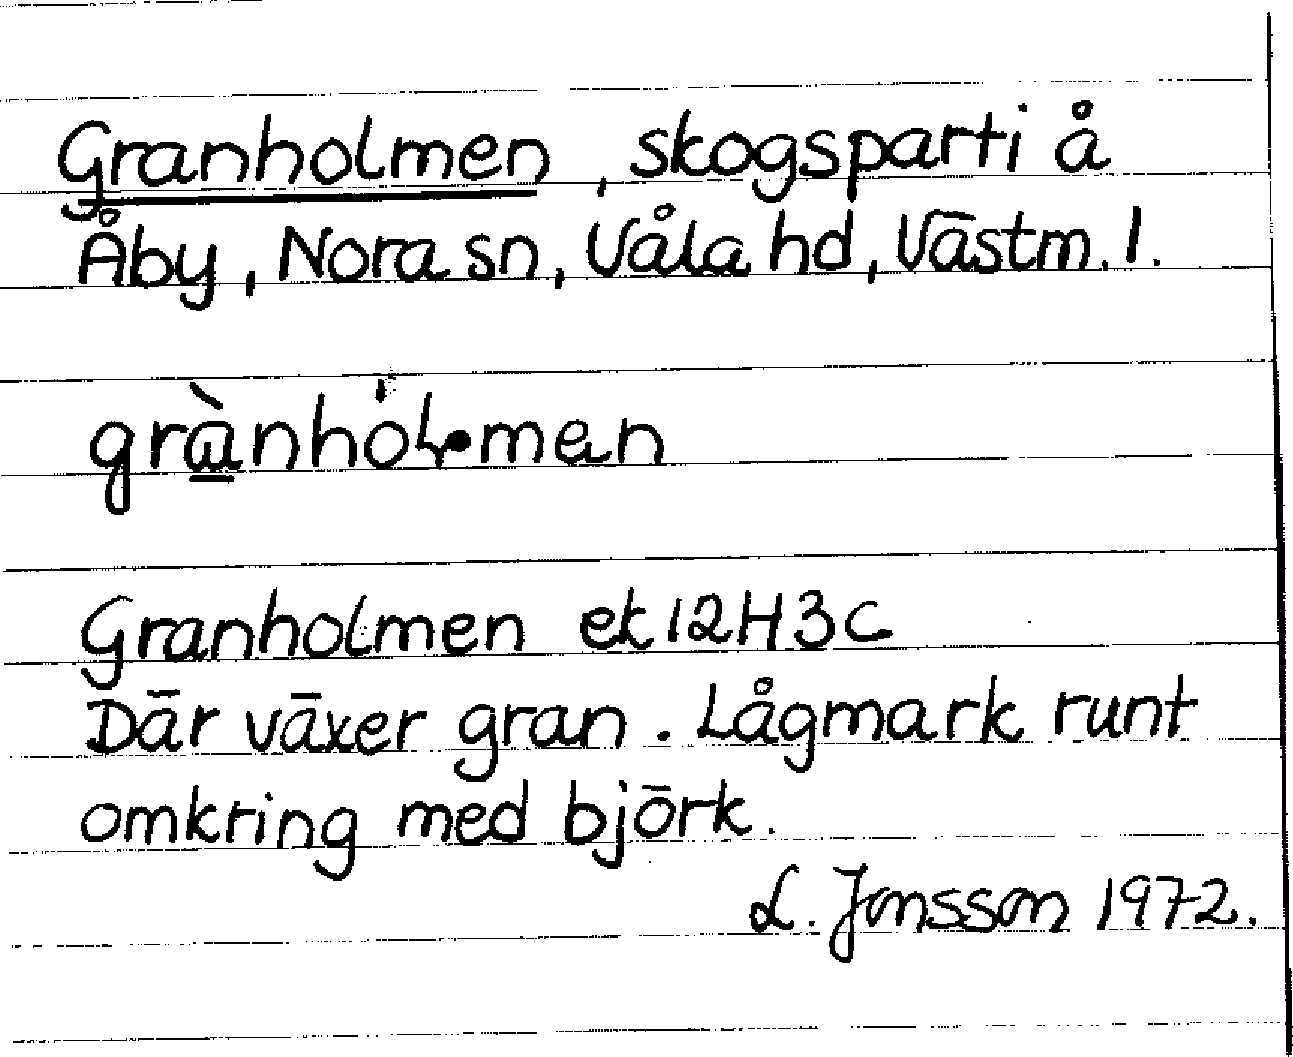 Granholmen, skogsparti å
Åby, Nora sn, Våla hd, Västm. l.
grànhól·men
Granholmen ek 12H3c
Där växer gran. Lågmark runt
omkring med björk.
L. Jonsson 1972.